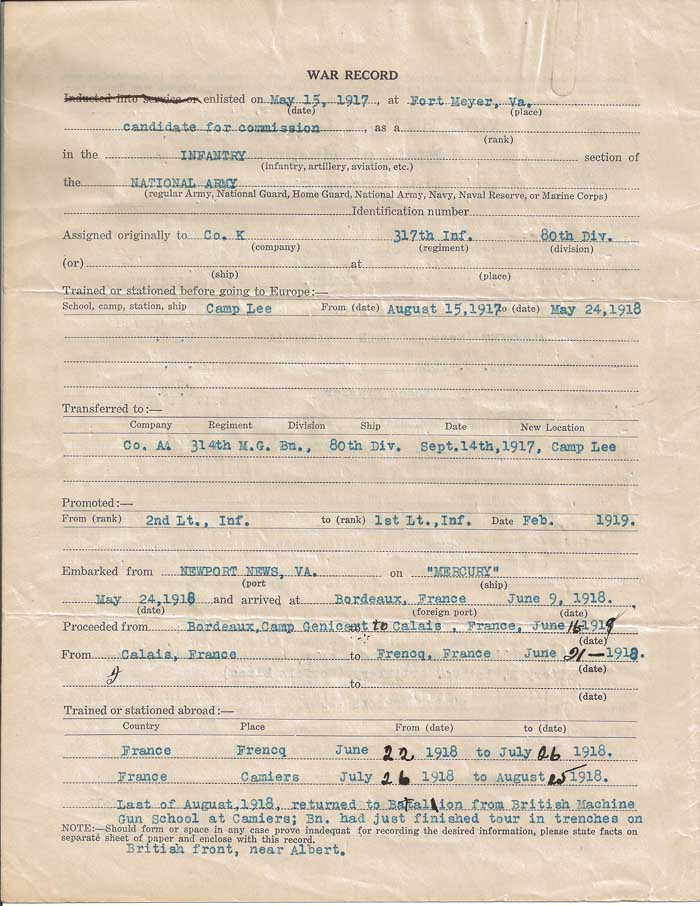 WAR RECORD
Inducted into service or enlisted on May 15, 1917, at Fort Meyer, Va.
(date) (place)
candidate for commission, as a
(rank)
in the INFANTRY section of
(infantry, artillery, aviation, etc.)
the NATIONAL ARMY
(regular Army, National Guard, Home Guard, National Army, Navy, Naval Reserve, or Marine Corps)
Identification number
Assigned originally to Co. K 317th Inf. 80th Div.
(company) (regiment) (division)
(or) at
(ship) (place)
Trained or stationed before going to Europe:—
School, camp, station, ship Camp Lee From (date) August 15,1917 to (date) May 24,1918
Transferred to:—
Company Regiment Division Ship Date New Location
Co. A. 314th M.G. Bn., 80th Div. Sept.14th,1917, Camp Lee
Promoted:—
From (rank) 2nd Lt., Inf. to (rank) 1st Lt.,Inf. Date Feb. 1919.
Embarked from NEWPORT NEWS, VA. on "MERCURY"
(port (ship)
May 24,1918 and arrived at Bordeaux, France June 9, 1918.
(date) (foreign port) (date)
Proceeded from Bordeaux,Camp Genicart to Calais , France, June 16 1919
(date)
From Calais, France to Frencq, France June 21— 1918.
(date)
to
(date)
Trained or stationed abroad:—
Country Place From (date) to (date)
France Frencq June 22 1918 to July 26 1918.
France Camiers July 26 1918 to August 25 1918.
Last of August,1918, returned to Battalion from British Machine
Gun School at Camiers; Bn. had just finished tour in trenches on
NOTE:—Should form or space in any case prove inadequat for recording the desired information, please state facts on
separate sheet of paper and enclose with this record.
British front, near Albert.